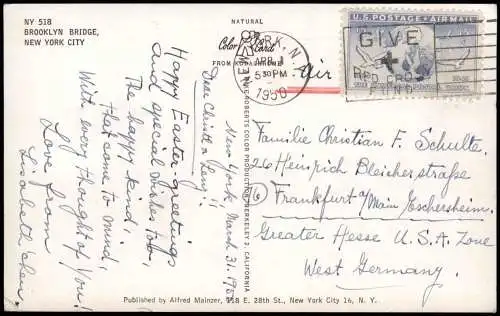 NY 518
BROOKLYN BRIDGE,
NEW YORK CITY
NATURAL
Color Card
FROM KODACHROME
YORK, N.
APR 1
5 30 PM
1950
GIVE
RED CROSS
FUND
U.S. POSTAGE • AIR MAIL
Air
New York March 31. 195
Happy Easter-greetings
and special wishes too,
The happy kind,
that come to mind,
With every thought of You!
Love from
Lisabeth
MIKE ROBERTS COLOR PRODUCTIONS, BERKELEY 2, CALIFORNIA
Familie Christian F. Schulte.
26 Heinrich Bleicherstraße
Frankfurt a/Main Eschersheim.
Greater Hesse U.S.A. Zone
West Germany.
Published by Alfred Mainzer, 118 E. 28th St., New York City 16, N. Y.